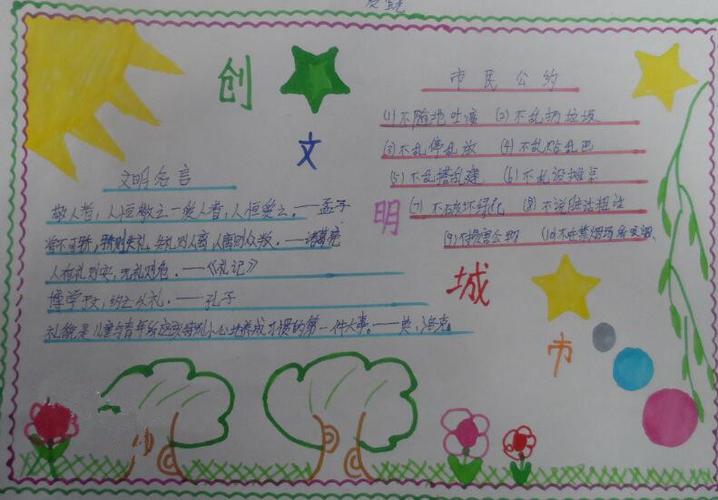 创
文
明
城
市
文明名言
敬人者，人恒敬之——爱人者，人恒爱之。——孟子
将不可骄，骄则失礼，失礼则人离，人离则众叛。——诸葛亮
人有礼则安，无礼则危。——《礼记》
博学于文，约之以礼。——孔子
礼貌是儿童与青年所应该特别小心地养成习惯的第一件大事。——英，洛克。
市民公约
(1) 不随地吐痰 (2) 不乱扔垃圾
(3) 不乱停乱放 (4) 不乱贴乱
(5) 不乱搭乱建 (6) 不乱设摊点
(7) 不破坏绿化 (8) 不说脏话粗话
(9) 不损害公物 (10) 不在禁烟场所吸烟